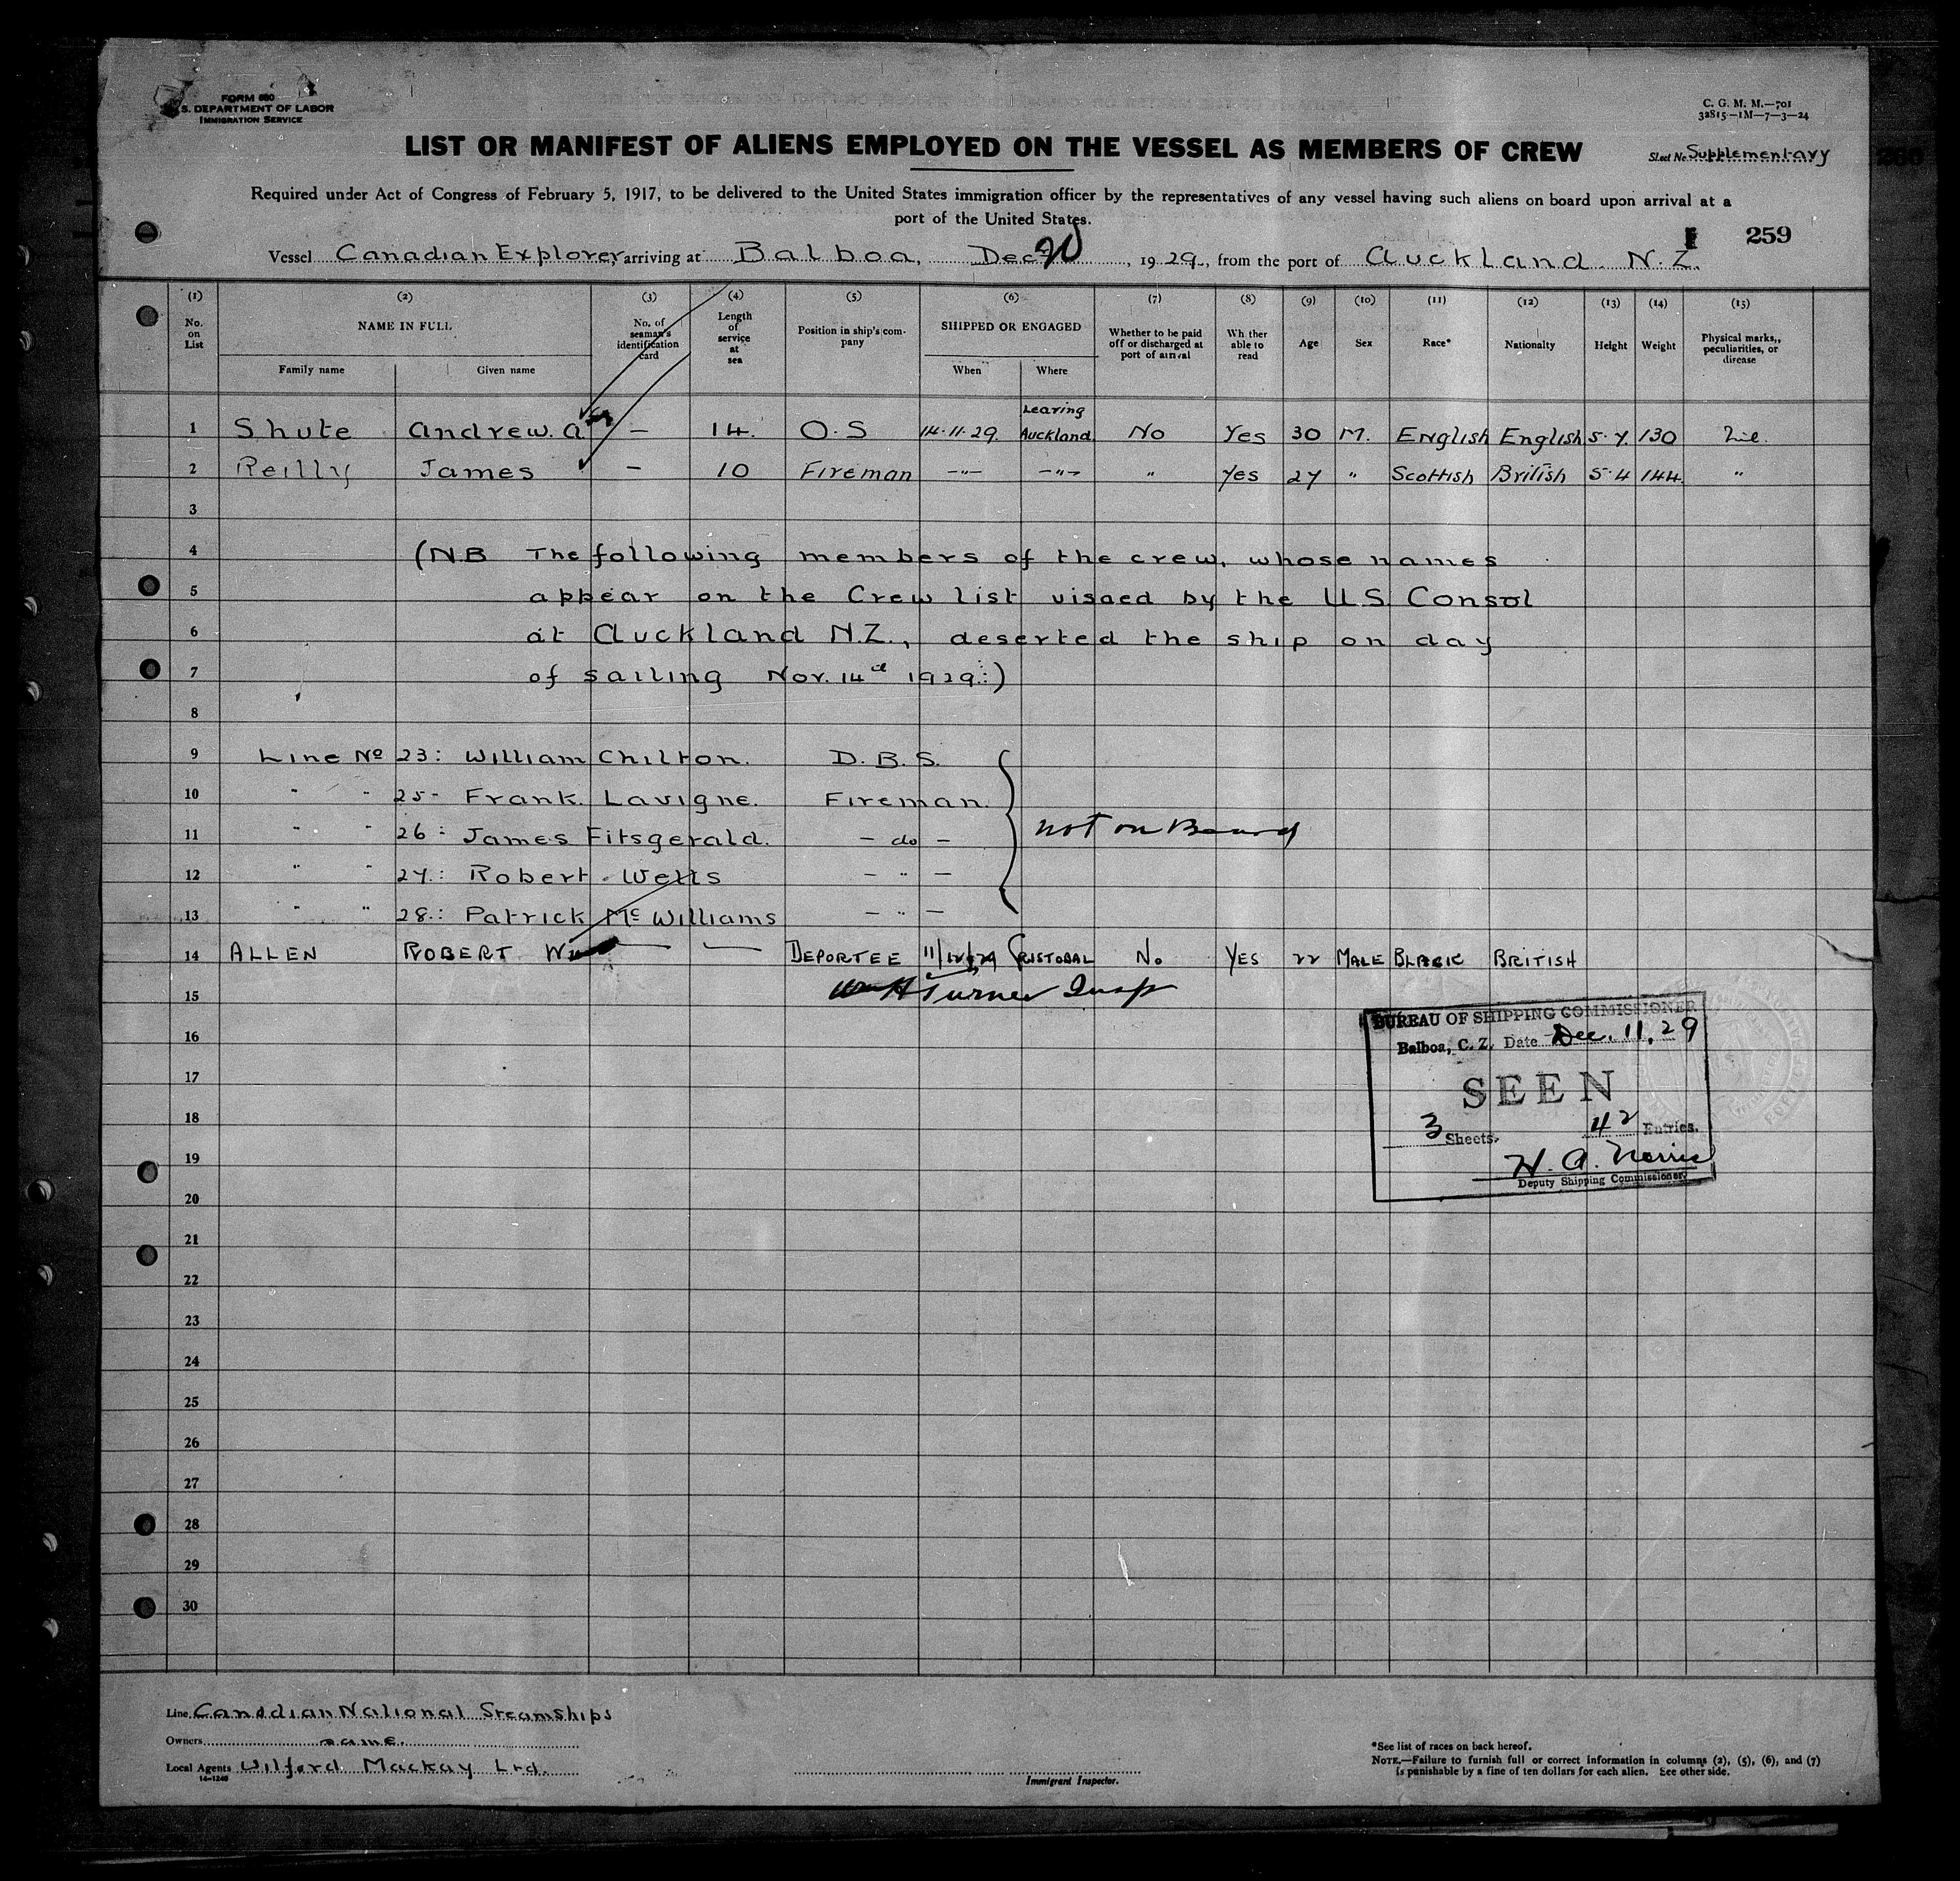 FORM 680
S. DEPARTMENT OF LABOR
IMMIGRATION SERVICE
C. G. M. M.—701
32815—1M—7—3—24
LIST OR MANIFEST OF ALIENS EMPLOYED ON THE VESSEL AS MEMBERS OF CREW
Sheet No. Supplementary
Required under Act of Congress of February 5, 1917, to be delivered to the United States immigration officer by the representatives of any vessel having such aliens on board upon arrival at a
port of the United States.
259
Vessel Canadian Explorer, arriving at Balboa, Dec, 1929, from the port of Auckland. N.Z.
(1) (2) (3) (4) (5) (6) (7) (8) (9) (10) (11) (12) (13) (14) (15)
No. on List NAME IN FULL No. of seaman's identification card Length of service at sea Position in ship's company SHIPPED OR ENGAGED Whether to be paid off or discharged at port of arrival Whether able to read Age Sex Race* Nationalty Height Weight Physical marks, peculiarities, or disease
Family name Given name When Where
Leaving
1 Shute Andrew. A — 14. O.S 14.11.29. Auckland No Yes 30 M. English English 5.7. 130 Nil.
2 Reilly James — 10 Fireman —"— —"— " Yes 27 " Scottish British 5.4 144 "
3
4 (N.B The following members of the crew, whose names
5 appear on the Crew list visaed by the U.S. Consol
6 at Auckland N.Z., deserted the ship on day
7 of sailing Nov. 14th 1929.)
8
9 Line No 23: William Chilton. D.B.S.
10 " " 25- Frank. Lavigne. Fireman.
11 " " 26: James Fitsgerald. — do — not on Board
12 " " 27.: Robert. Wells — " —
13 " " 28.: Patrick McWilliams — " —
14 ALLEN ROBERT — — DEPORTEE 11/12/29 CRISTOBAL No YES 22 MALE BLACK BRITISH
15 Wm H Turner Insp
16
17
18
19
20
21
22
23
24
25
26
27
28
29
30
BUREAU OF SHIPPING COMMISSIONER
Balboa, C. Z. Date Dec. 11, 29
SEEN
3 Sheets. 42 Entries.
H. A.
Deputy Shipping Commissioner.
Line Canadian National Steamships
Owners same.
Local Agents Wilford Mackay Ltd.
14—1240
Immigrant Inspector.
*See list of races on back hereof.
NOTE.—Failure to furnish full or correct information in columns (2), (5), (6), and (7)
is punishable by a fine of ten dollars for each alien. See other side.